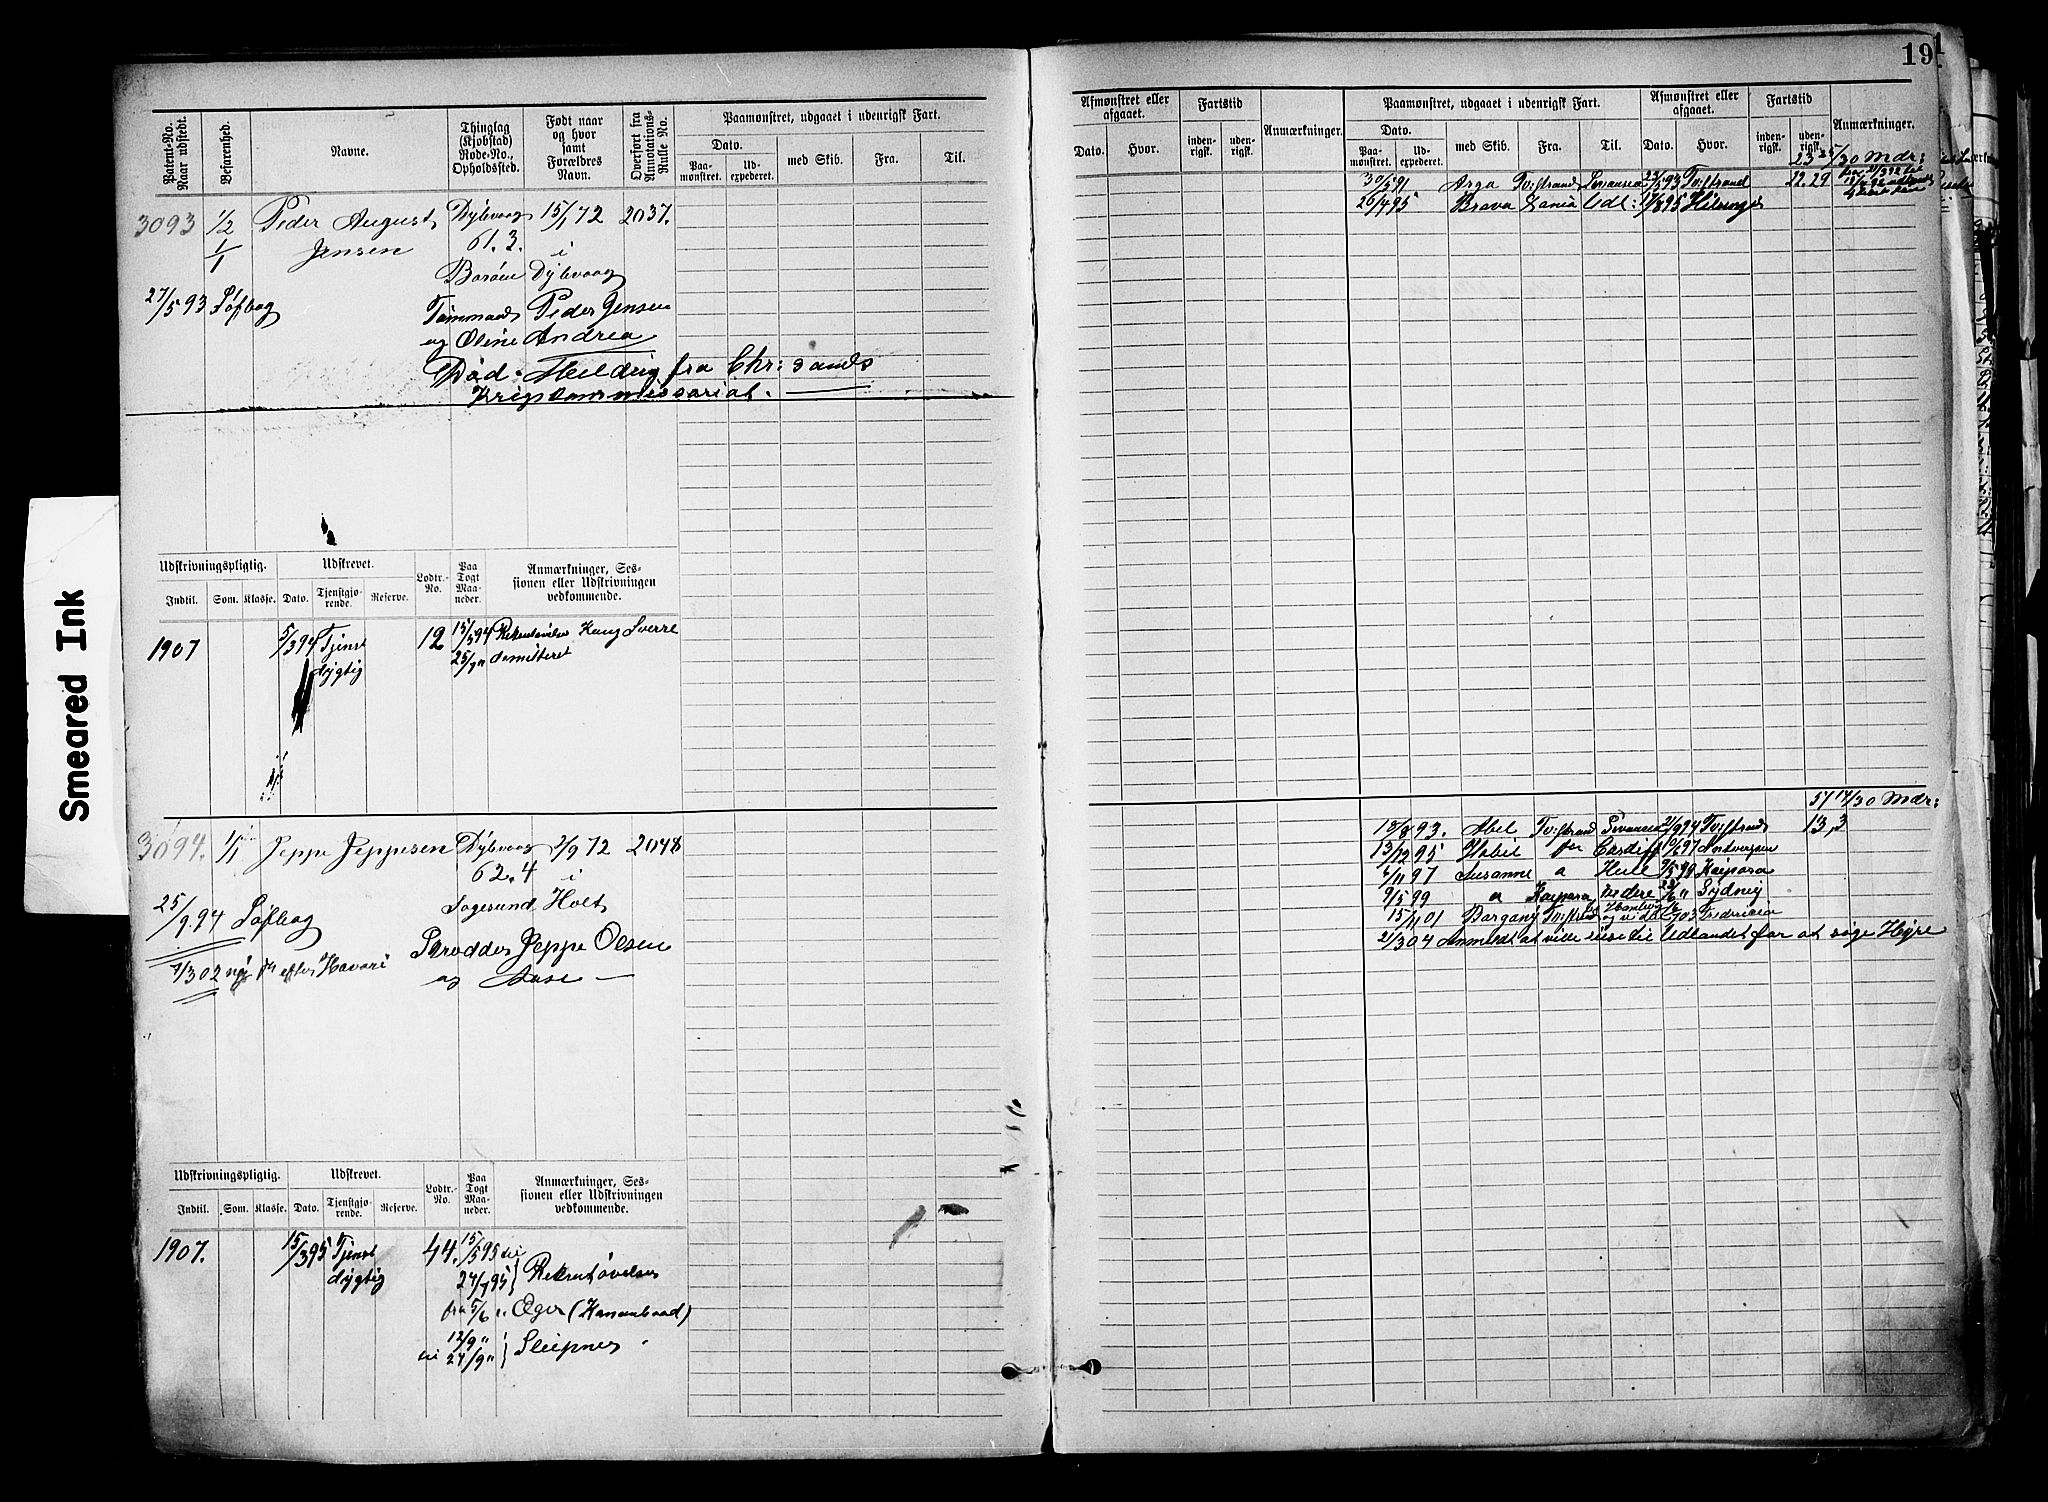 19
1
Smeared Ink
Patent-No. Naar udstedt.
Befarenhed.
Navne.
Thinglag (Kjøbstad) Rode-No., Opholdssted.
Født naar og hvor samt Forældres Navn.
Overført fra Annotations-Rulle No.
Paamønstret, udgaaet i udenrigsk Fart.
Dato.
Paamønstret.
Udexpederet.
med Skib.
Fra.
Til.
3093 1/2 Peder August Dybvaag 15/1 72 2037.
1/1 Jensen 61.3. i
Borøen Dybvaag
27/5 93 Søfbog Tømmand Peder Jensen
og Oline Andrea
Død. Melding fra Chr:sands
Krigskommissariat.
Udskrivningspligtig.
Udskrevet.
Lodtr.-No.
Paa Togt Maaneder.
Anmærkninger, Sessionen eller Udskrivningen vedkommende.
Indtil. Som. Klasse. Dato. Tjenstgjørende. Reserve.
1907 5/3 94 Tjenst 12 15/5 94 Rekrutøvelse Kong Sverre
dygtig 25/7 " demitteret
3094. 1/1 Jeppe Jeppesen Dybvaag 2/9 72 2048
62.4 i
Sagesund Holt
25/9.94 Søfbog Skrædder Jeppe Olsen
1/3 02 ny do efter Havari og Aase —
Udskrivningspligtig.
Udskrevet.
Lodtr.-No.
Paa Togt Maaneder.
Anmærkninger, Sessionen eller Udskrivningen vedkommende.
Indtil. Som. Klasse. Dato. Tjenstgjørende. Reserve.
1907. 15/3 95 Tjenst 44. 15/5 95 til
dygtig 24/7 95 Rekrutøvelse
fra 5/6 " Æger (Kanonbaad)
12/9 "
til 24/9 " Sleipner
Afmønstret eller afgaaet.
Dato. Hvor.
Fartstid
indenrigsk. udenrigsk.
Anmærkninger.
Paamønstret, udgaaet i udenrigsk Fart.
Dato.
Paamønstret. Udexpederet.
med Skib. Fra. Til.
Afmønstret eller afgaaet.
Dato. Hvor.
Fartstid
indenrigsk. udenrigsk.
Anmærkninger.
23 25/30 Mdr:
30/5 91 Arga Tvistrand Swansea 23/5 93 Tvistrand 22.29
26/4 95 Brava Xania Udl: 17/8 95 Helsingør
51 14/30 Mdr:
18/8 93. Abel Tvistrand Swansea 21/9 94 Tvistrand 13,3
13/12 95 Habil Cardiff 10/6 97 Antverpen
6/11 97 Susanne a Hull 9/5 99 Kaipara
9/5 99 a Kaipara videre 23/6 " Sydney
15/11 01 Bargany Tvistrand Hamburg og vid. 1/6 03 Fredericia
21/3 04 Anmeldt at ville reise til Udlandet for at søge Hyre